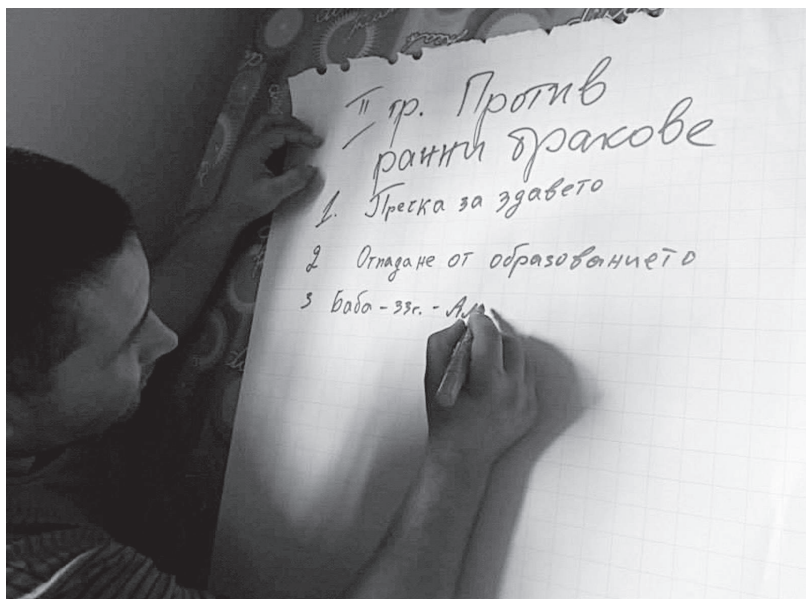 II гр. Против
ранни бракове
1. Пречка за здавето
2 Отпадане от образованието
3 Баба - 33г. -